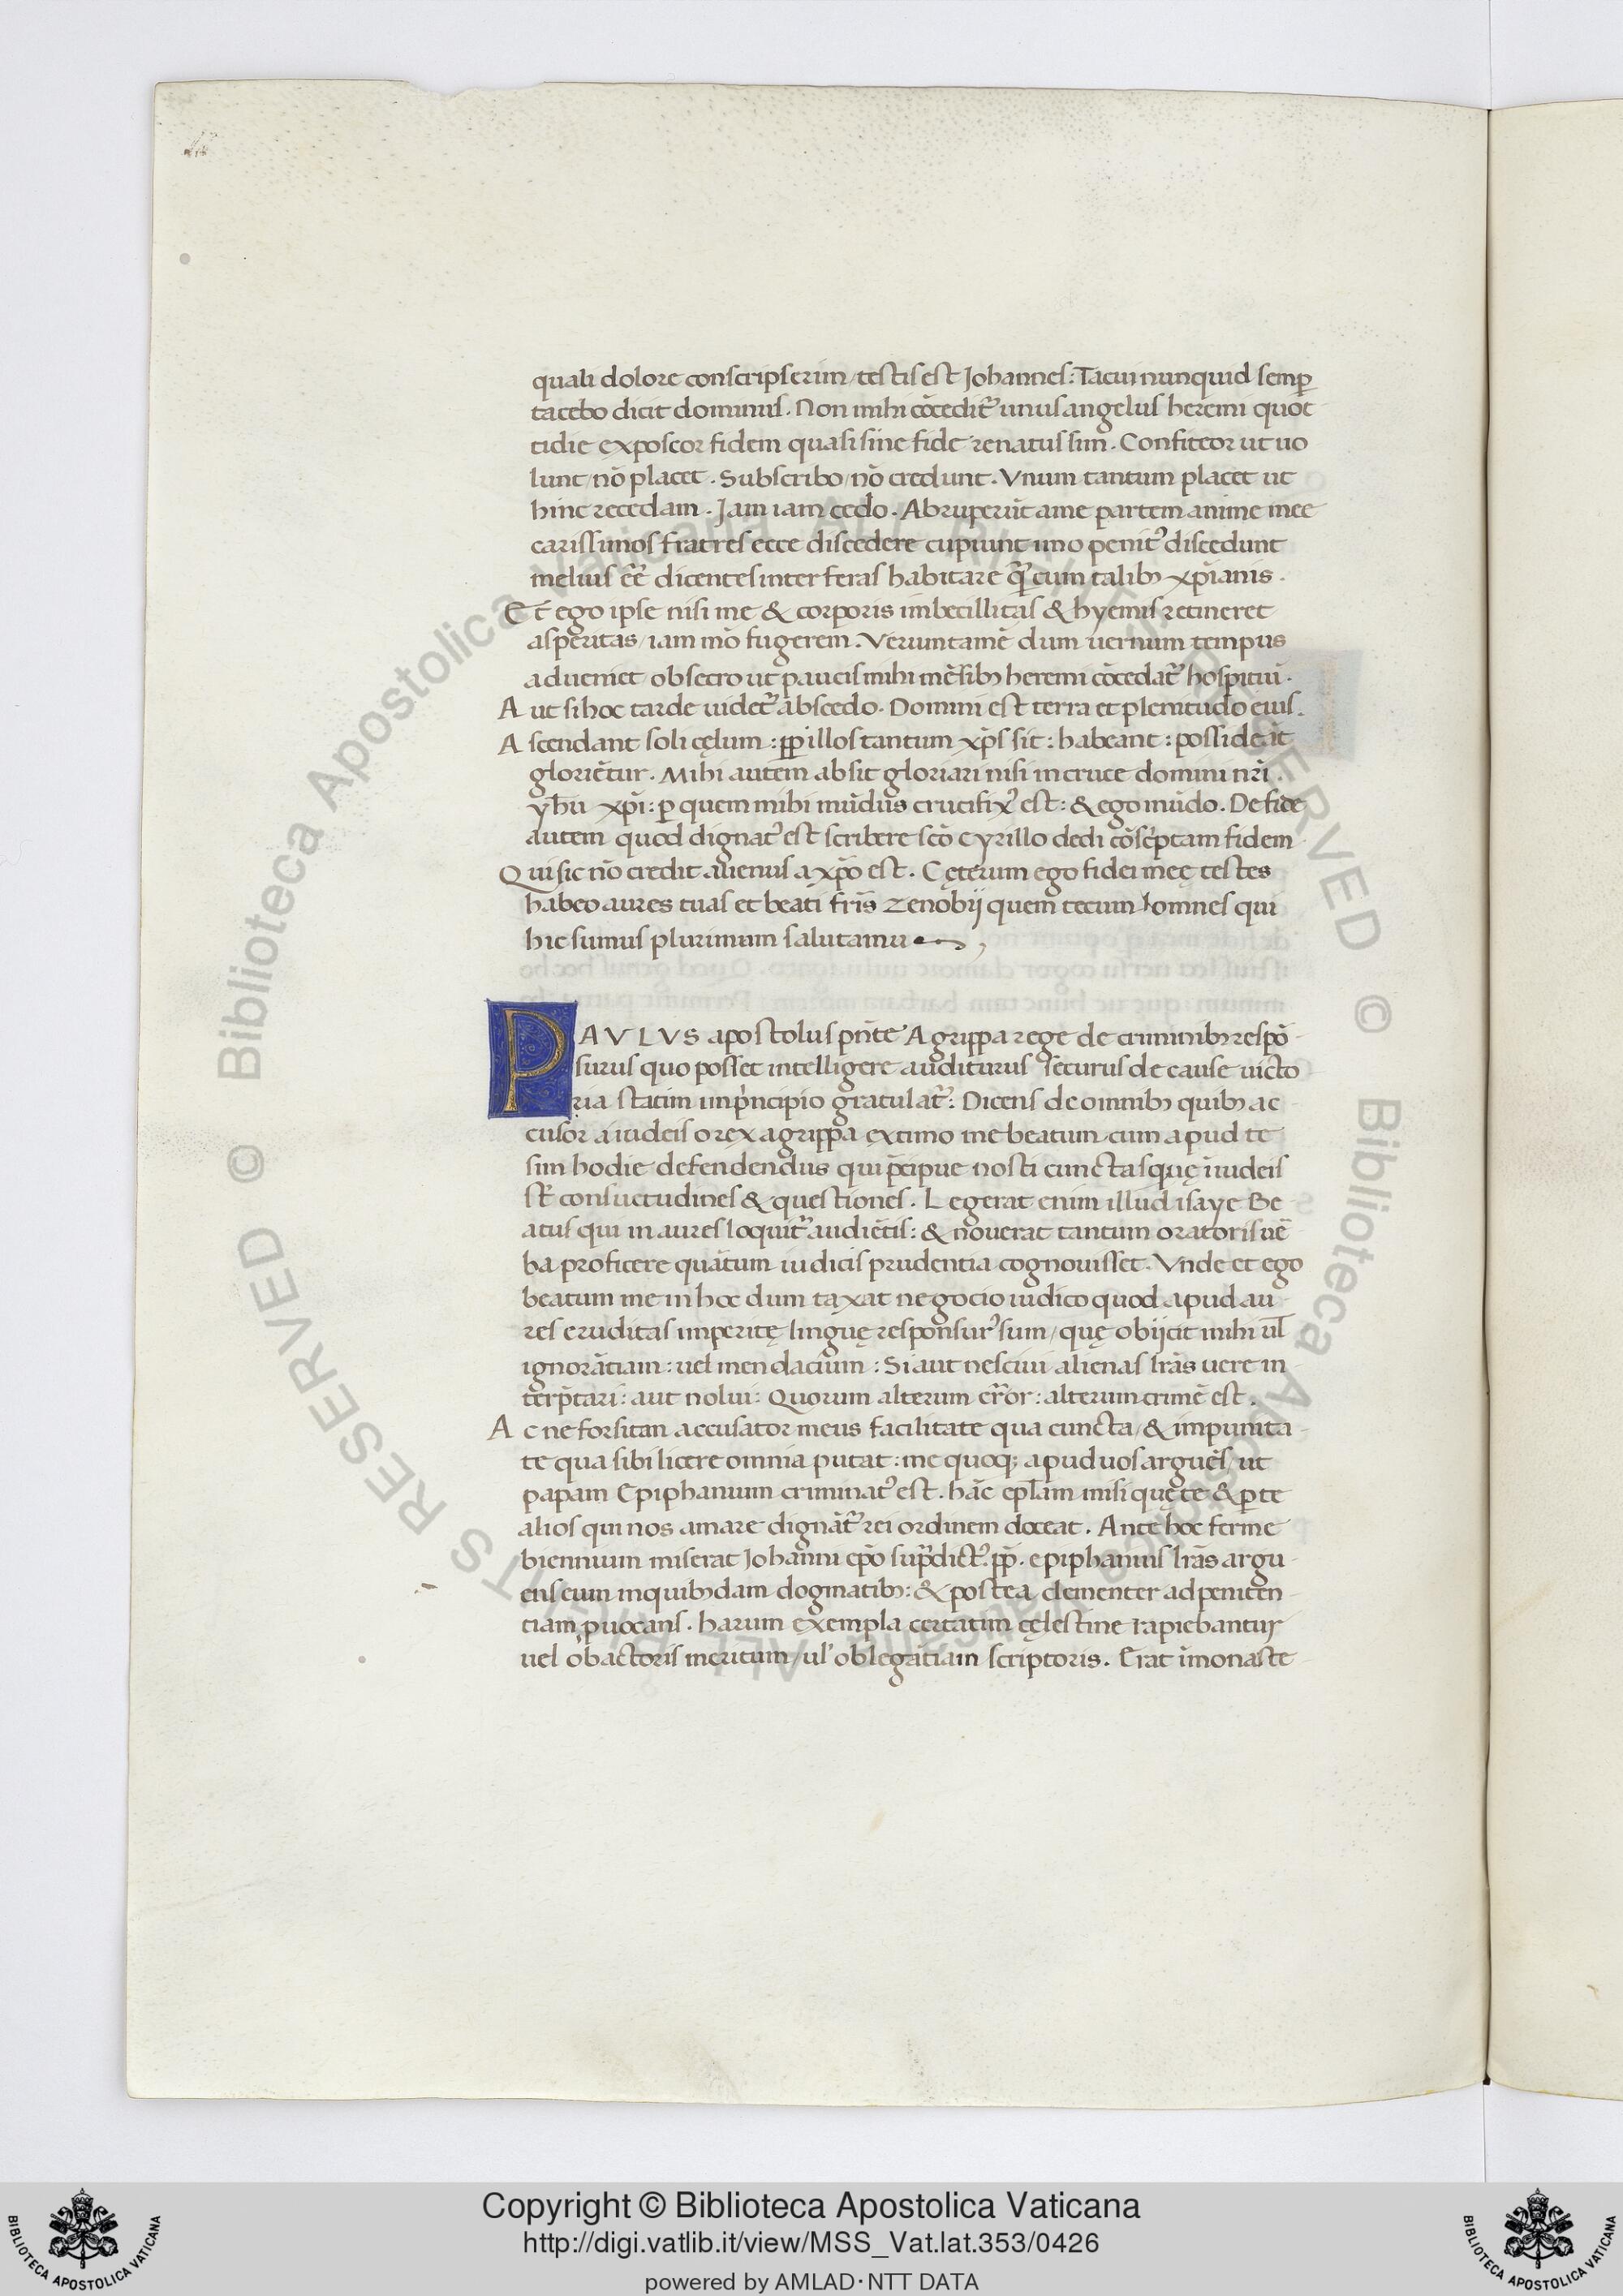 quali dolore conscripserim/testis est Johannes: Tacui nunquid semp̲
tacebo dicit dominus. Non mihi cōcedit᷑ unus angelus heremi quot
tidie exposcor fidem quasi sine fide renatus sim. Confiteor ut uo
lunt/nō placet. Subscribo/nō credunt. Vnum tantum placet ut
hinc recedam. Jam iam cedo. Abruperūt a me partem anime mee
carissimos fratres ecce discedere cupiunt imo penitꝰ discedunt
melius eē dicentes inter feras habitare q̄ cum talibꝫ xp̄ianis.
Et ego ipse nisi me & corporis imbecillitas & hyemis retineret
asperitas/iam mō fugerem. Veruntamē dum uernum tempus
adueniet obsecro ut paucis mihi mēsibꝫ heremi cōcedat᷑ hospitiū.
Aut si hoc tarde uidet᷑ abscedo. Domini est terra et plenitudo eius.
Ascendant soli cęlum: ꝓpillos tantum xp̄s sit: habeant: possideāt
gloriētur. Mihi autem absit gloriari nisi in cruce domini nr̄i.
yhū xp̄i: ꝑ quem mihi mūdus crucifixꝰ est: & ego mūdo. De fide
autem quod dignatꝰ est scribere scō Cyrillo dedi cōscͥptam fidem
Qui sic nō credit alienus a xp̄o est. Cęterum ego fidei meę testes
habeo aures tuas et beati fr̄is Zenobij quem tecum omnes qui
hic sumus plurimum salutamu
PAVLVS apostolus pn̄te Agrippa rege de criminibꝫ respō
surus quo posset intelligere auditurus securus de cause uicto
ria statim in pͥncipio gratulat᷑: Dicens de omnibꝫ quibꝫ ac
cusor a iudeis o rex agrippa extimo me beatum cum apud te
sim hodie defendendus qui p̄cipue nosti cunctas quę in iudeis
st̄ consuetudines & questiones. Legerat enim illud isaye Be
atus qui in aures loquit᷑ audiētis: & nouerat tantum oratoris uē
ba proficere quātum iudicis prudentia cognouisset. Vnde et ego
beatum me in hoc dum taxat negocio iudico quod apud au
res eruditas imperitę linguę responsurꝰ sum/quę obijcit mihi ul̄
ignorātiam: uel mendacium: Si aut nesciui alienas lr̄as uere in
terp̄tari: aut nolui: Quorum alterum error: alterum crimē est.
Ac ne forsitan accusator meus facilitate qua cuncta/& impunita
te qua sibi licere omnia putat: me quoqꝫ apud uos arguēs/ut
papam Epiphanium criminatꝰ est. hāc epl̄am misi quę te & ꝑ te
alios qui nos amare dignāt᷑ rei ordinem doceat. Ante hoc ferme
biennium miserat Johanni ep̄o sup̄dictꝰ pp̄. epiphanius lr̄as argu
ens eum in quibꝫdam dogmatibꝫ: & postea clementer ad peniten
tiam ꝓuocans. harum exempla certatim cęlestine rapiebantur
uel ob actoris meritum/ul' ob legātiam scriptoris. Erat ī monaste
© Biblioteca Apostolica Vaticana ALL RIGHTS RESERVED © Biblioteca Apostolica Vaticana ALL RIGHTS RESERVED
BIBLIOTECA APOSTOLICA VATICANA
Copyright © Biblioteca Apostolica Vaticana
http://digi.vatlib.it/view/MSS_Vat.lat.353/0426
powered by AMLAD·NTT DATA
BIBLIOTECA APOSTOLICA VATICANA